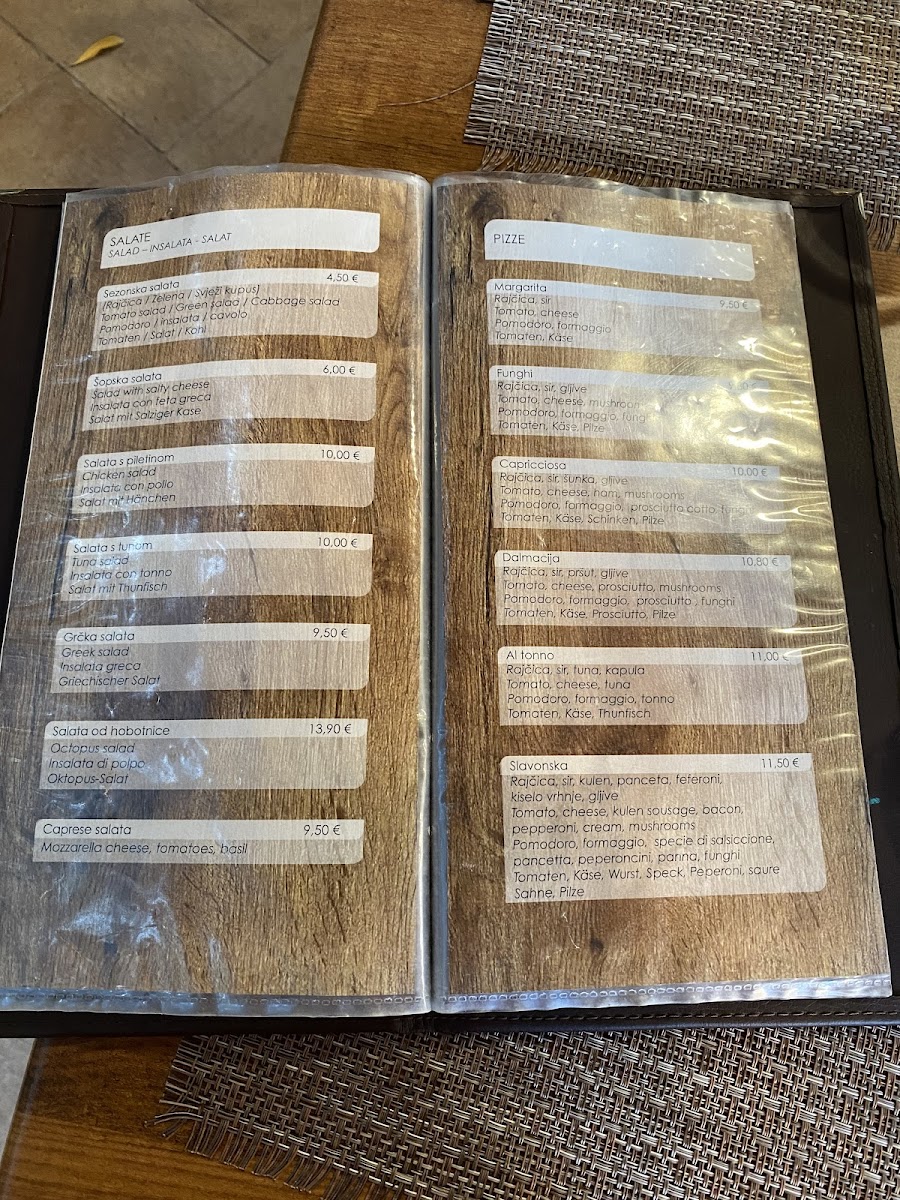 SALATE
SALAD – INSALATA - SALAT
Sezonska salata 4,50 €
(Rajčica / Zelena / Svježi kupus)
Tomato salad / Green salad / Cabbage salad
Pomodoro / insalata / cavolo
Tomaten / Salat / Kohl
Šopska salata 6,00 €
Salad with salty cheese
Insalata con feta greca
Salat mit Salziger Kase
Salata s piletinom 10,00 €
Chicken salad
Insalata con pollo
Salat mit Hänchen
Salata s tunom 10,00 €
Tuna salad
Insalata con tonno
Salat mit Thunfisch
Grčka salata 9,50 €
Greek salad
Insalata greca
Griechischer Salat
Salata od hobotnice 13,90 €
Octopus salad
Insalata di polpo
Oktopus-Salat
Caprese salata 9,50 €
Mozzarella cheese, tomatoes, basil
PIZZE
Margarita 9,50 €
Rajčica, sir
Tomato, cheese
Pomodoro, formaggio
Tomaten, Käse
Funghi
Rajčica, sir, gljive
Tomato, cheese, mushroom
Pomodoro, formaggio, fung
Tomaten, Käse, Pilze
Capricciosa 10,00 €
Rajčica, sir, šunka, gljive
Tomato, cheese, ham, mushrooms
Pomodoro, formaggio, prosciutto cotto, funghi
Tomaten, Käse, Schinken, Pilze
Dalmacija 10,80 €
Rajčica, sir, pršut, gljive
Tomato, cheese, prosciutto, mushrooms
Pomodoro, formaggio, prosciutto , funghi
Tomaten, Käse, Prosciutto, Pilze
Al tonno 11,00 €
Rajčica, sir, tuna, kapula
Tomato, cheese, tuna
Pomodoro, formaggio, tonno
Tomaten, Käse, Thunfisch
Slavonska 11,50 €
Rajčica, sir, kulen, panceta, feferoni,
kiselo vrhnje, gljive
Tomato, cheese, kulen sousage, bacon,
pepperoni, cream, mushrooms
Pomodoro, formaggio, specie di salsiccione,
pancetta, peperoncini, panna, funghi
Tomaten, Käse, Wurst, Speck, Peperoni, saure
Sahne, Pilze